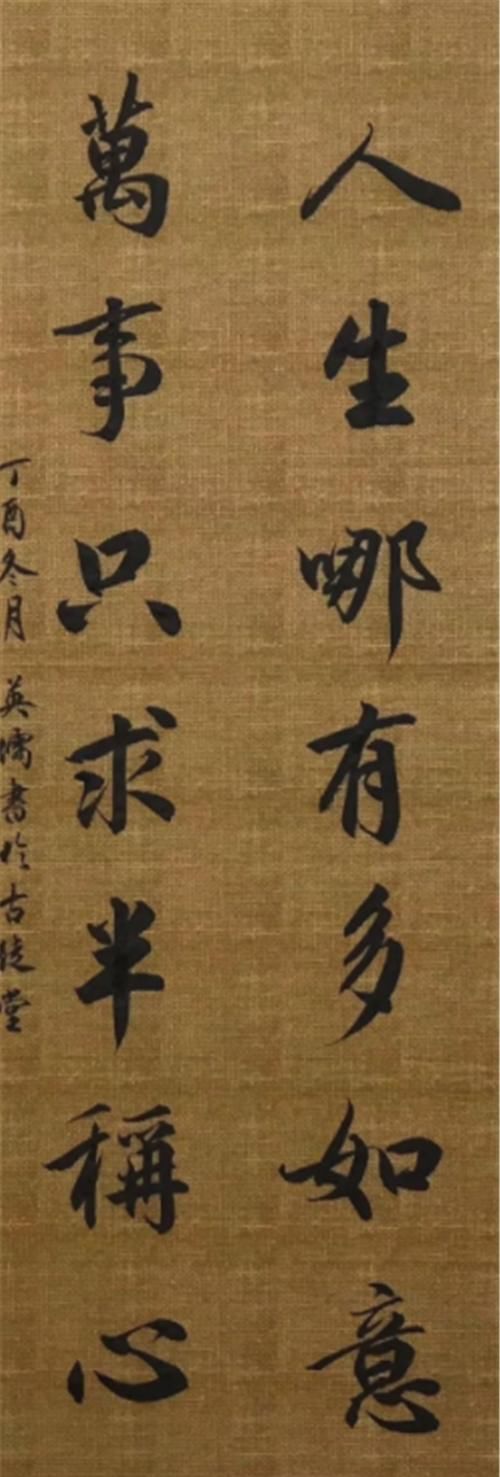 人生哪有多如意
萬事只求半稱心
丁酉冬月 英儒書於古陵堂